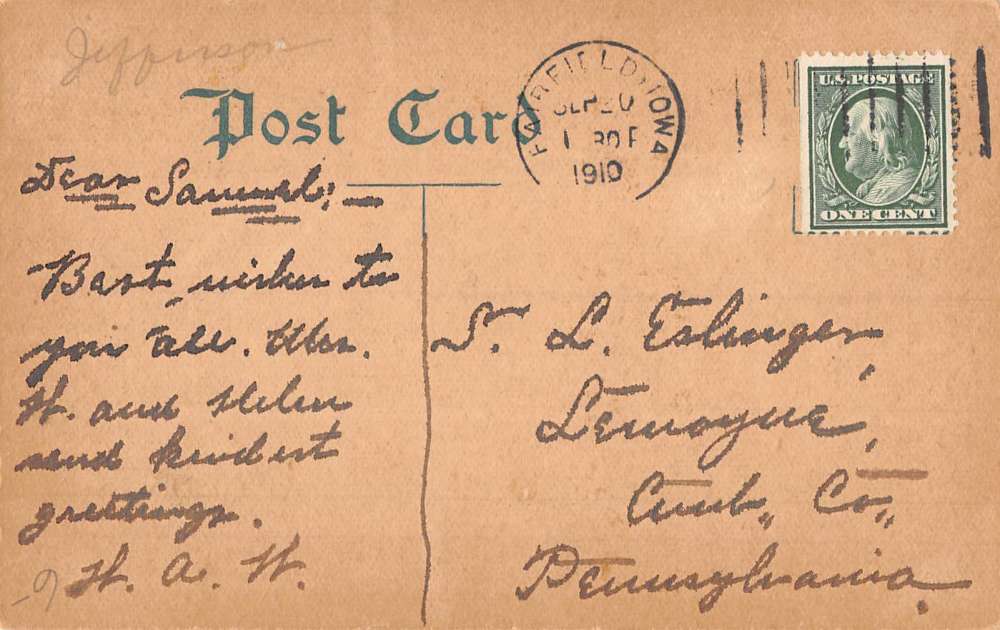 Jefferson
Post Card
FAIRFIELD, IOWA
SEP 20
1 30 P
1910
U.S. POSTAGE
ONE CENT
Dear Samuel:—
Best wishes to
you all. Mrs.
W. and Helen
send kindest
greetings.
H. A. W.
S. L. Eslinger,
Lemoyne,
Cumb. Co.,
Pennsylvania.